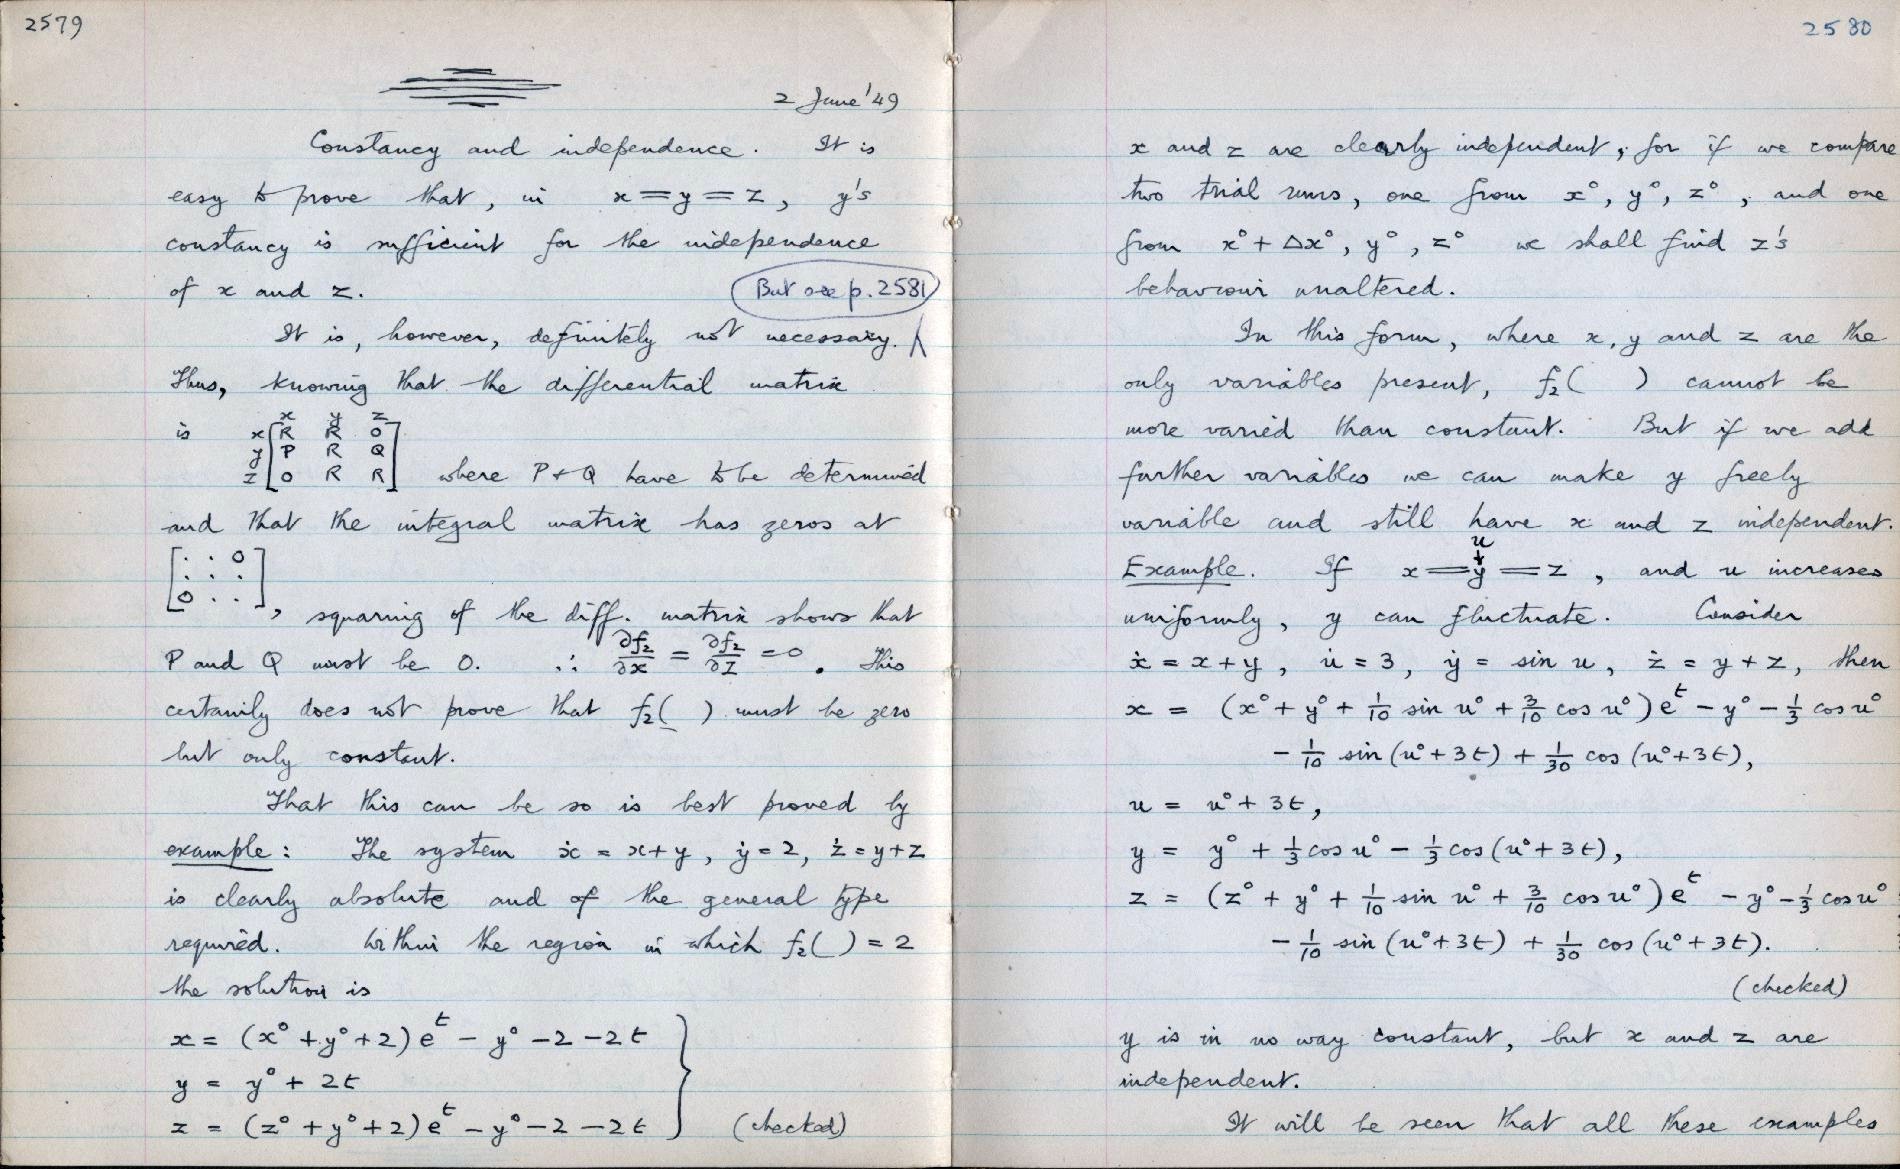 2579
2 June '49
Constancy and independence. It is
easy to prove that, in x = y = z, y's
constancy is sufficient for the independence
of x and z. But see p. 2581
It is, however, definitely not necessary.
Thus, knowing that the differential matrix
x y z
is x [ R R O
y P R Q
z O R R ] where P + Q have to be determined
and that the integral matrix has zeros at
[ . . O
. . .
O . . ], squaring of the diff. matrix shows that
P and Q must be O. ∴ ∂f₂/∂x = ∂f₂/∂z = 0. This
certainly does not prove that f₂( ) must be zero
but only constant.
That this can be so is best proved by
example: The system ẋ = x+y, ẏ = 2, ż = y+z
is clearly absolute and of the general type
required. Within the region in which f₂( ) = 2
the solution is
x = (x° + y° + 2) eᵗ − y° − 2 − 2t
y = y° + 2t
z = (z° + y° + 2) eᵗ − y° − 2 − 2t } (checked)
2580
x and z are clearly independent, for if we compare
two trial runs, one from x°, y°, z°, and one
from x° + Δx°, y°, z° we shall find z's
behaviour unaltered.
In this form, where x, y and z are the
only variables present, f₂( ) cannot be
more varied than constant. But if we add
further variables we can make y freely
variable and still have x and z independent.
u
↓
Example. If x = y = z, and u increases
uniformly, y can fluctuate. Consider
ẋ = x + y, u̇ = 3, ẏ = sin u, ż = y + z, then
x = (x° + y° + 1/10 sin u° + 3/10 cos u°) eᵗ − y° − 1/3 cos u°
− 1/10 sin (u° + 3t) + 1/30 cos (u° + 3t),
u = u° + 3t,
y = y° + 1/3 cos u° − 1/3 cos (u° + 3t),
z = (z° + y° + 1/10 sin u° + 3/10 cos u°) eᵗ − y° − 1/3 cos u°
− 1/10 sin (u° + 3t) + 1/30 cos (u° + 3t).
(checked)
y is in no way constant, but x and z are
independent.
It will be seen that all these examples